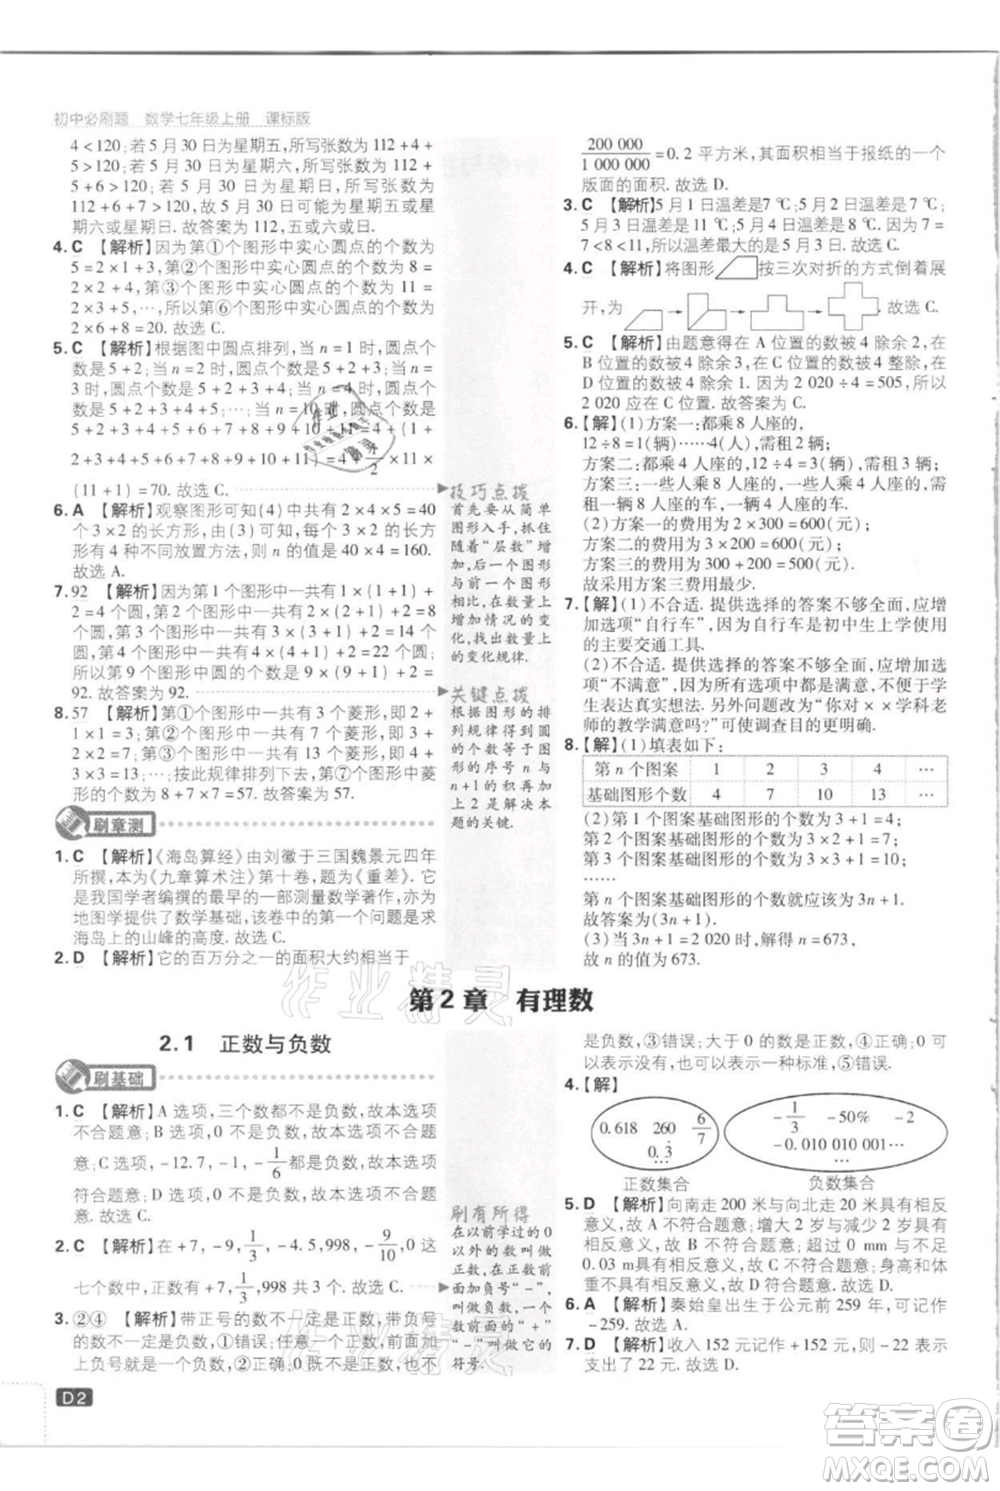 初中必刷题 数学七年级上册 课标版
4<120;若 5 月 30 日为星期五,所写张数为 112+4+
5>120;若 5 月 30 日为星期六,所写张数为
112+6+7>120,故 5 月 30 日可能为星期五、星
期六或星期日.故答案为 112,五或六或日.
4. C 【解析】因为第①个图形中实心圆点的个数为
5=2×1+3,第②个图形中实心圆点的个数为 8=
2×2+4,…,所以第⑥个图形中实心圆点的个数为
2×6+8=20.故选 C.
5. C 【解析】根据图中圆点排列,当 n=1 时,圆点个
数为 5+2;当 n=2 时,圆点个数为 5+2+3;当
n=3 时,圆点个数为 5+2+3+4;当 n=4 时,圆点个
数为 5+2+3+4+5;…;当 n=10 时,圆点个数为
5+2+3+4+5+6+7+8+9+10+11=4+(1+
2+3+4+5+6+7+8+9+10+11)=4+1/2×11×
(11+1)=70.故选 C.
6. A 【解析】观察图形可知(4)中共有 2×4×5=40
个 3×2 的长方形,由(3)可知,每个 3×2 的长方
形有 4 种不同放置方法,则 n 的值是 40×4=160.
故选 A.
7. 92 【解析】因为第 1 个图形中一共有 1×(1+1)+
2=4 个圆,第 2 个图形中一共有 2×(2+1)+2=8
个圆,第 3 个图形中一共有 3×(3+1)+2=14 个
圆,第 4 个图形中一共有 4×(4+1)+2=22 个圆,
所以第 9 个图形中圆的个数是 9×(9+1)+2=
92.故答案为 92.
8. 57 【解析】第①个图形中一共有 3 个菱形,即 2+
1×1=3;第②个图形中共有 7 个菱形,即 3+2×2=
7;第③个图形中共有 13 个菱形,即 4+3×3=
13;…;按此规律排列下去,所以第⑦个图形中菱
形的个数为 8+7×7=57.故答案为 57.
刷章测
1. C 【解析】《海岛算经》由刘徽于三国魏景元四年
所撰,本为《九章算术注》第十卷,题为《重差》.它
是我国学者编撰的最早的一部测量数学著作,亦为
地图学提供了数学基础,该卷中的第一个问题是求
海岛上的山峰的高度.故选 C.
2. D 【解析】它的百万分之一的面积大约相当于
技巧点拨
首先要从简单
图形入手,抓住
随着“层数”增
加,后一个图形
与前一个图形
相比,在数量上
增加情况的变
化,找出数量上
的变化规律.
关键点拨
根据图形的排
列规律得到圆
的个数等于图
形的序号 n 与
n+1 的积再加
上 2 是解决本
题的关键.
200 000/1 000 000=0.2 平方米,其面积相当于报纸的一个
版面的面积.故选 D.
3. C 【解析】5 月 1 日温差是7 ℃,5 月 2 日温差是
8 ℃,5 月 3 日温差是 11 ℃,5 月 4 日温差是 7 ℃,
7<8<11,所以温差最大的是 5 月 3 日.故选 C.
4. C 【解析】将图形 按三次对折的方式倒着展
开,为 → → → .故选 C.
5. C 【解析】由题意得在 A 位置的数被 4 除余 2,在
B 位置的数被 4 除余 3,在 C 位置的数被 4 整除,在
D 位置的数被 4 除余 1.因为 2 020÷4=505,所以
2 020 应在 C 位置.故答案选 C.
6.【解】(1)方案一:都乘 8 人座的车.
12÷8=1(辆)……4(人),需租两辆;
方案二:都乘 4 人座的车,12÷4=3(辆),需租三辆;
方案三:一些人乘 8 人座的车,一些人乘 4 人座的车,
需租一辆 8 人座的车,一辆 4 人座的车.
(2)方案一的费用为 2×300=600(元);
方案二的费用为 3×200=600(元);
方案三的费用为 300+200=500(元).
故采用方案三费用最少.
7.【解】(1)不合适.提供选择的答案不够全面,应增
加选项“自行车”,因为自行车是初中生上学使用
的主要交通工具.
(2)不合适.提供选择的答案不够全面,应增加选
项“不满意”,因为所有选项中都是满意,不便于学
生表达真实想法.另外问题改为“你对××学科老
师的教学满意吗?”可使调查目的更明确.
8.【解】(1)填表如下:
第 n 个图案 1 2 3 4 …
基础图形个数 4 7 10 13 …
(2)第 1 个图案基础图形的个数为 3+1=4;
第 2 个图案基础图形的个数为 3×2+1=7;
第 3 个图案基础图形的个数为 3×3+1=10;
……
第 n 个图案基础图形的个数就应该为 3n+1.
故答案为(3n+1).
(3)当 3n+1=2 020 时,解得 n=673,
故 n 的值为 673.
第 2 章 有理数
2.1 正数与负数
刷基础
1. C 【解析】A 选项,三个数都不是负数,故本选项
不合题意;B 选项,0 不是负数,故本选项不合题
意;C 选项,-12.7,-1,-1/6都是负数,故本选项符
合题意;D 选项,2,8 不是负数,故本选项不合题
意.故选 C.
2. C 【解析】+7,0,-9,1/3,-4.5,998,-9/10,0 这
七个数中,正数有+7,1/3,998 共 3 个.故选 C.
3. ②④ 【解析】带正号的数不一定是正数,带负号的
数不一定是负数,①错误;任意一个正数,前面加
上负号就是一个负数,②正确;0 不是正数,也不
刷有所得
在以前学过的 0
以外的数叫做
正数,在正数前
面加负号“-”,
叫做负数,一个
数前面的“+”
“-”号叫做它的
符号.
是负数,③错误;大于 0 的数是正数,④正确;0 可
以表示没有,也可以表示一种标准,⑤错误.
4.【解】
0.618 260 6/7
0.3̇ …
正数集合
-1/3 -50% -2
-0.010 010 001…
…
负数集合
5. D 【解析】向南走 200 米与向北走 20 米具有相反
意义,故 A 不符合题意;增大 2 岁与减少 2 升不具
有相反意义,故 B 不符合题意;超过 0 mm 与不足
0.03 m具有相反意义,故 C 不符合题意;增大与体
重不具有相反意义,故 D 符合题意.故选 D.
6. A 【解析】秦始皇出生于公元前 259 年,可记作
-259.故选 A.
7. D 【解析】收入 152 元记作+152 元,则-22 表示
支出了 22 元.故选 D.
D2
作业精灵
答案卷
MXQE.COM